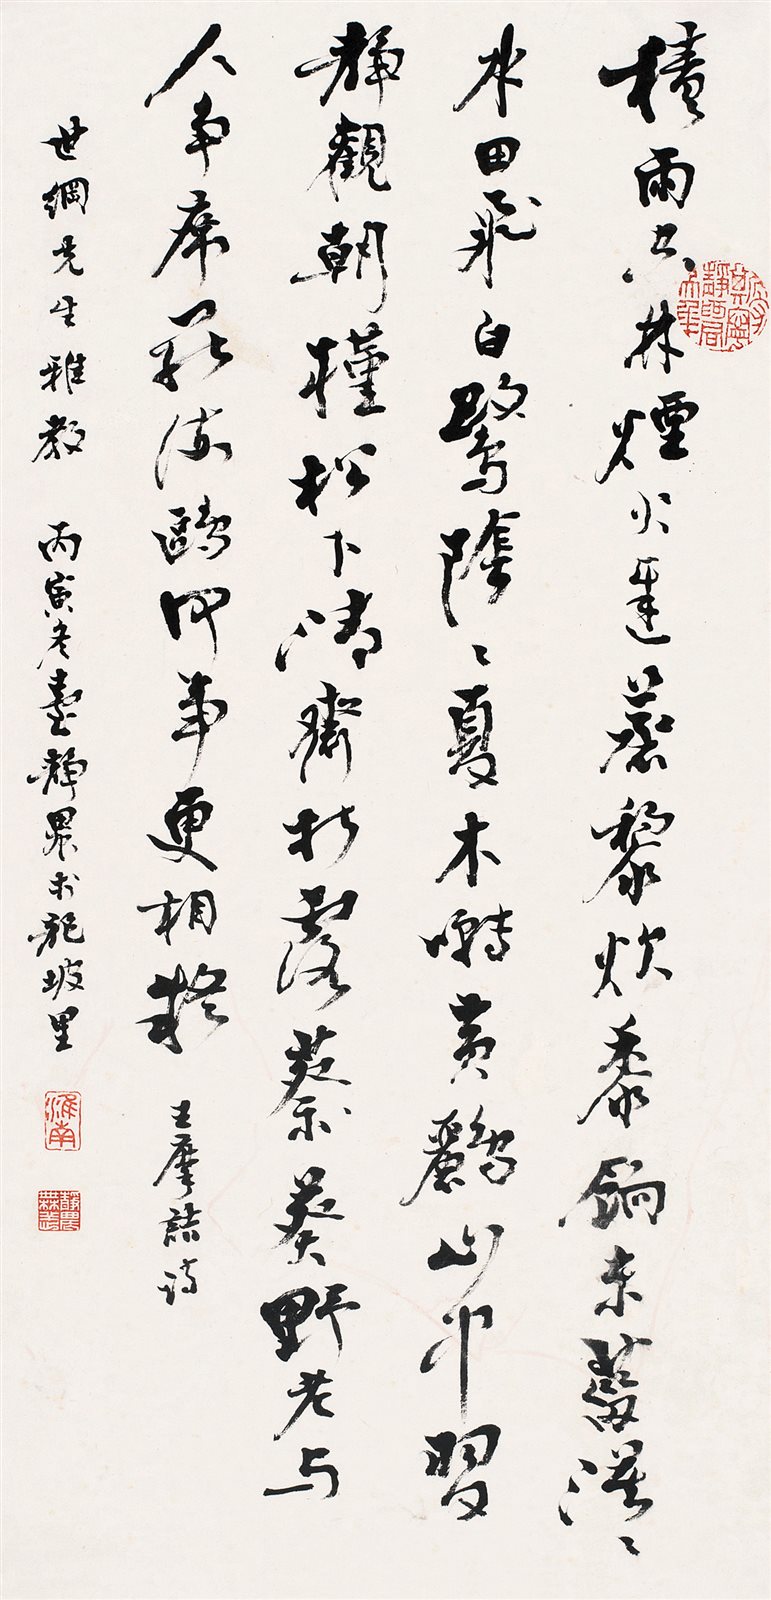 積雨空林煙火遲蒸黎炊黍餉東菑漠〻
水田飛白鷺陰〻夏木囀黃鸝山中習
靜觀朝槿松下清齋折露蔡葵野老与
人爭席罷海鷗何事更相疑 王摩詰詩
世綱先生雅教 丙寅冬臺靜農於龍坡里
淮南
靜農無恙